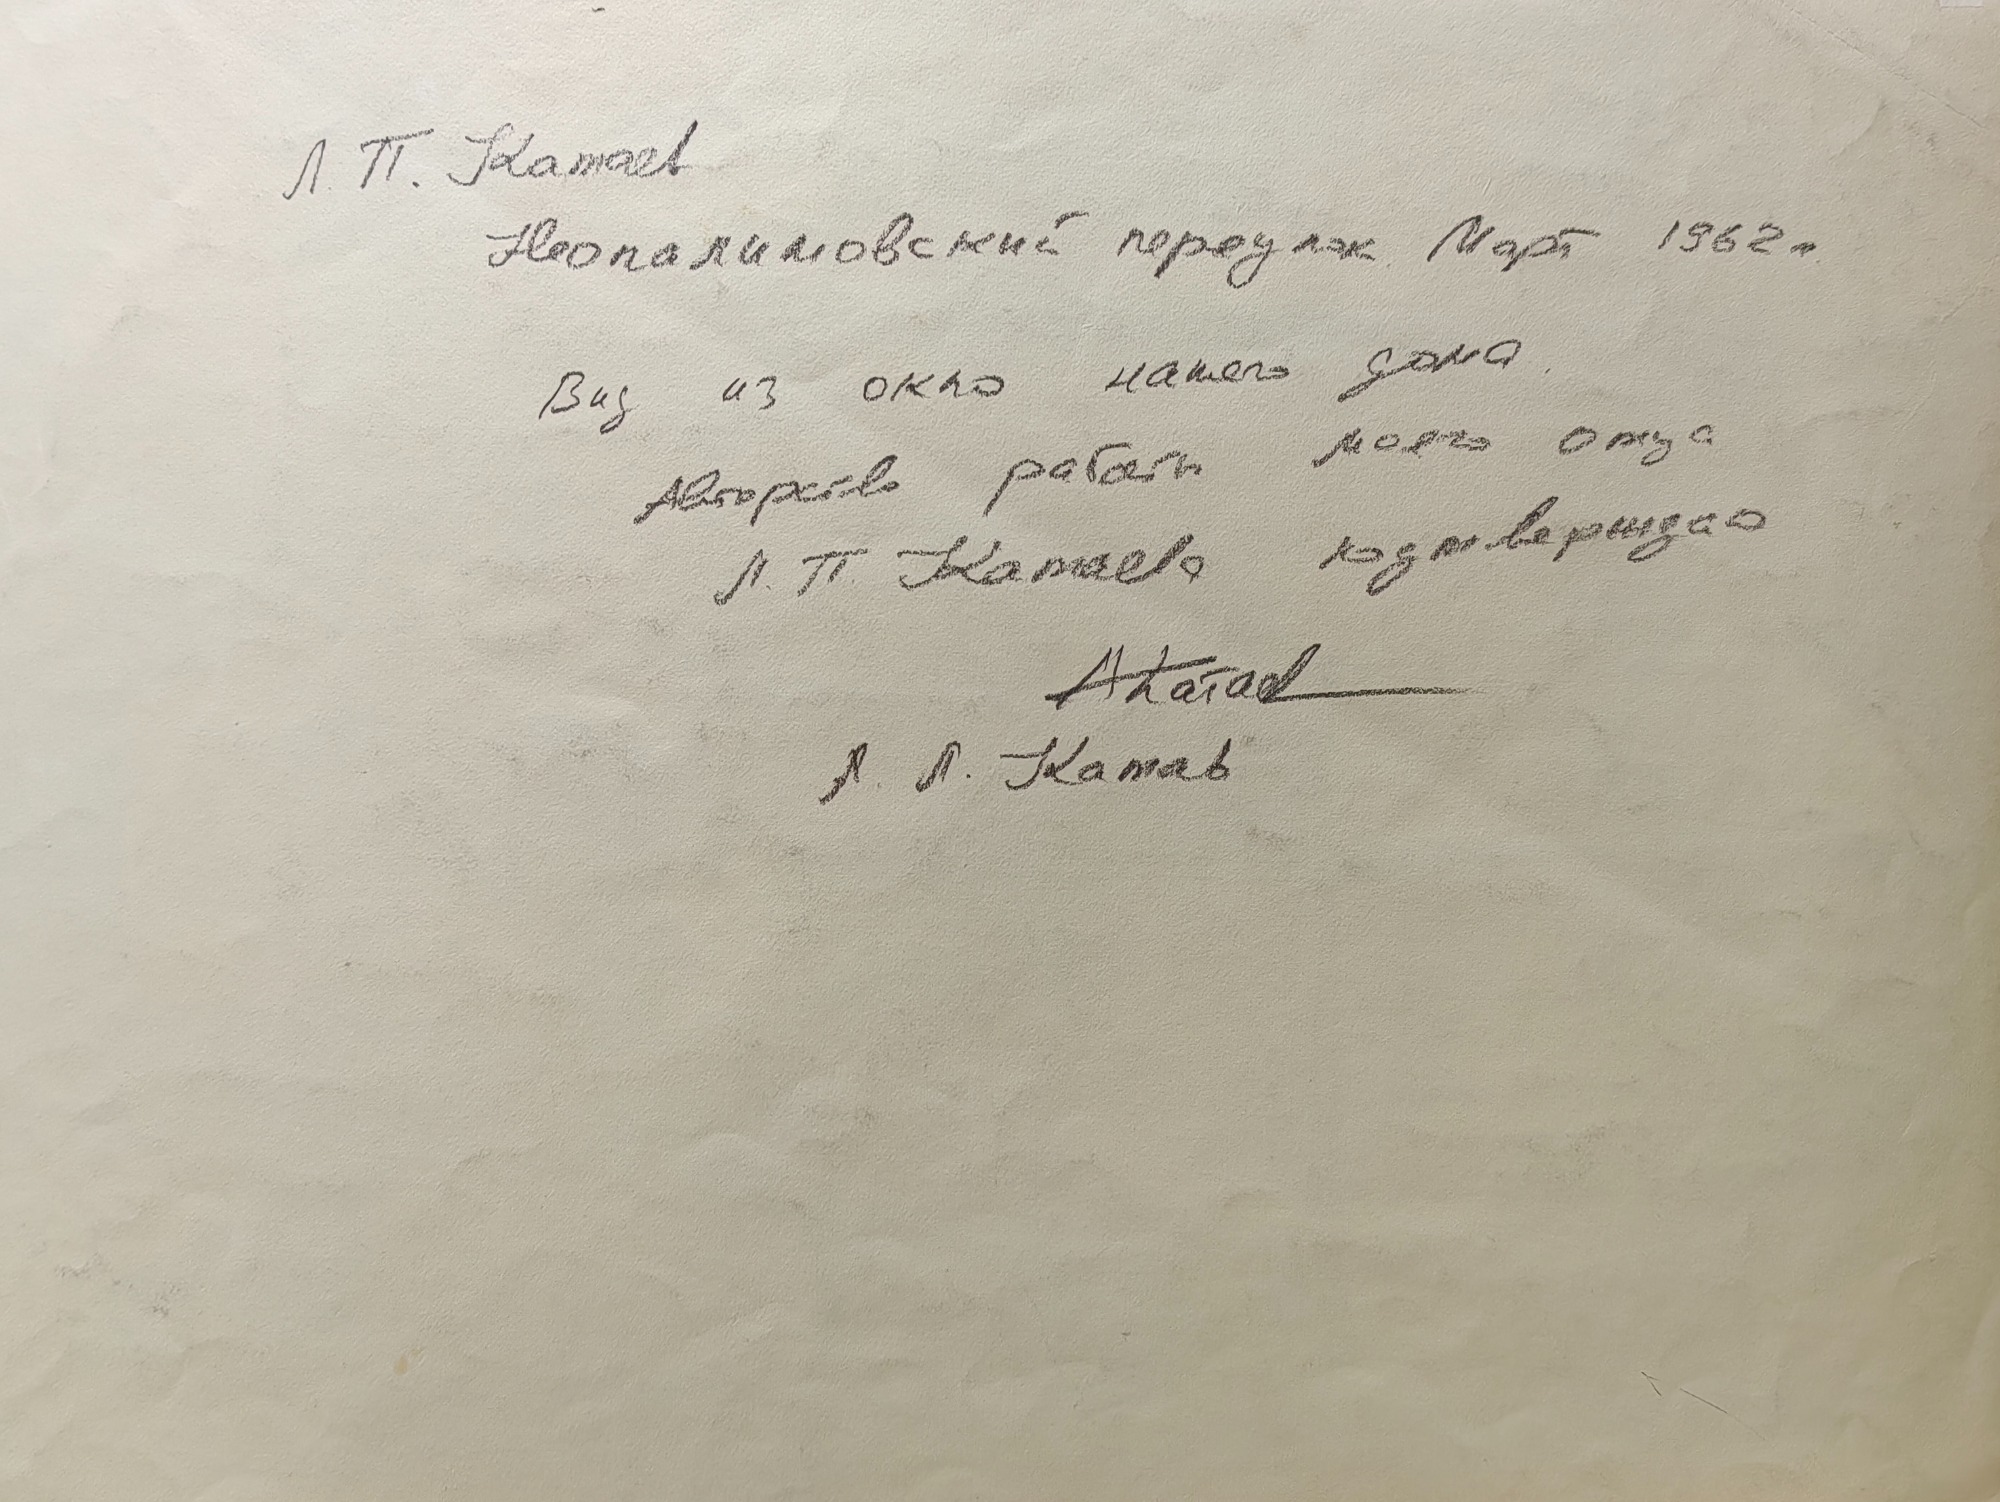 Л. П. Катаев
Неопалимовский переулок. Март 1962 г.
Вид из окно нашего дома.
Авторство работы моего отца
Л. П. Катаева подтверждаю
АКатаев
Л. Л. Катаев